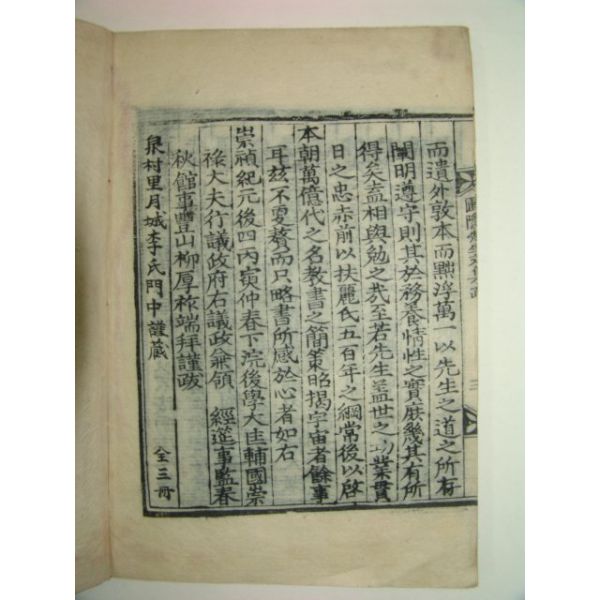 圃隱先生文集跋
三
而遺外敦本而黜浮萬一以先生之道之所存
闡明遵守則其於務養情性之實庶幾其有所
得矣盍相與勉之哉至若先生蓋世之功業貫
日之忠赤前以扶麗氏五百年之綱常後以啓
本朝萬億代之名教書之簡策昭揭宇宙者餘事
耳玆不更贅而只略書所感於心者如右
崇禎紀元後四丙寅仲春下浣後學大匡輔國崇
祿大夫行議政府右議政兼領 經筵事監春
秋館事豐山柳厚祚端拜謹跋
泉村里月城李氏門中謹藏
全三冊